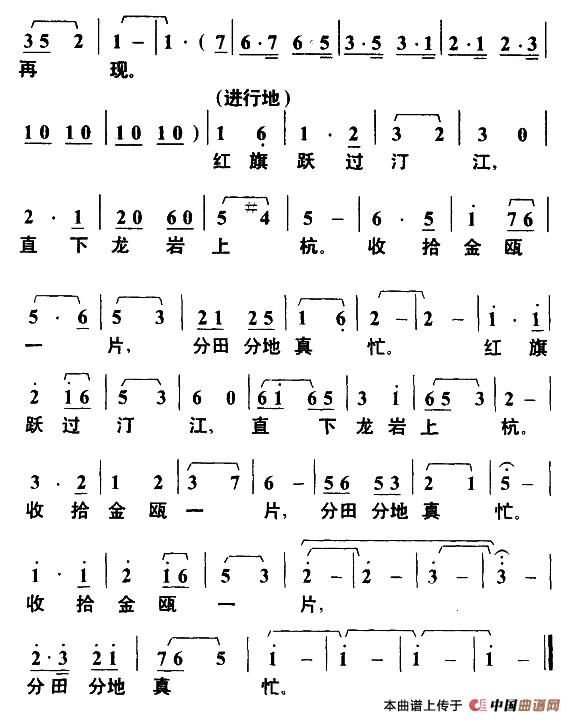 3 5 2 | 1 – | 1 · ( 7 | 6 · 7 6 5 | 3 · 5 3 · 1 | 2 · 1 2 · 3 |
再 现。
(进行地)
1 0 1 0 | 1 0 1 0 ) | 1 6 | 1 · 2 | 3 2 | 3 0 |
红 旗 跃 过 汀 江,
2 · 1 | 2 0 6 0 | 5 #4 | 5 – | 6 · 5 | 1 7 6 |
直 下 龙 岩 上 杭。 收 拾 金 瓯
5 · 6 | 5 3 | 2 1 2 5 | 1 6 | 2 – | 2 – | 1 · 1 |
一 片, 分田 分地 真 忙。 红 旗
2 1 6 | 5 3 | 6 0 | 6 1 6 5 | 3 1 | 6 5 3 | 2 – |
跃 过 汀 江, 直 下 龙 岩 上 杭。
3 · 2 | 1 2 | 3 7 | 6 – | 5 6 5 3 | 2 1 | 5 – |
收 拾 金 瓯 一 片, 分田 分地 真 忙。
1 · 1 | 2 1 6 | 5 3 | 2 – | 2 – | 3 – | 3 – |
收 拾 金 瓯 一 片,
2 · 3 2 1 | 7 6 5 | 1 – | 1 – | 1 – | 1 – ‖
分 田 分 地 真 忙。
本曲谱上传于 中国曲谱网